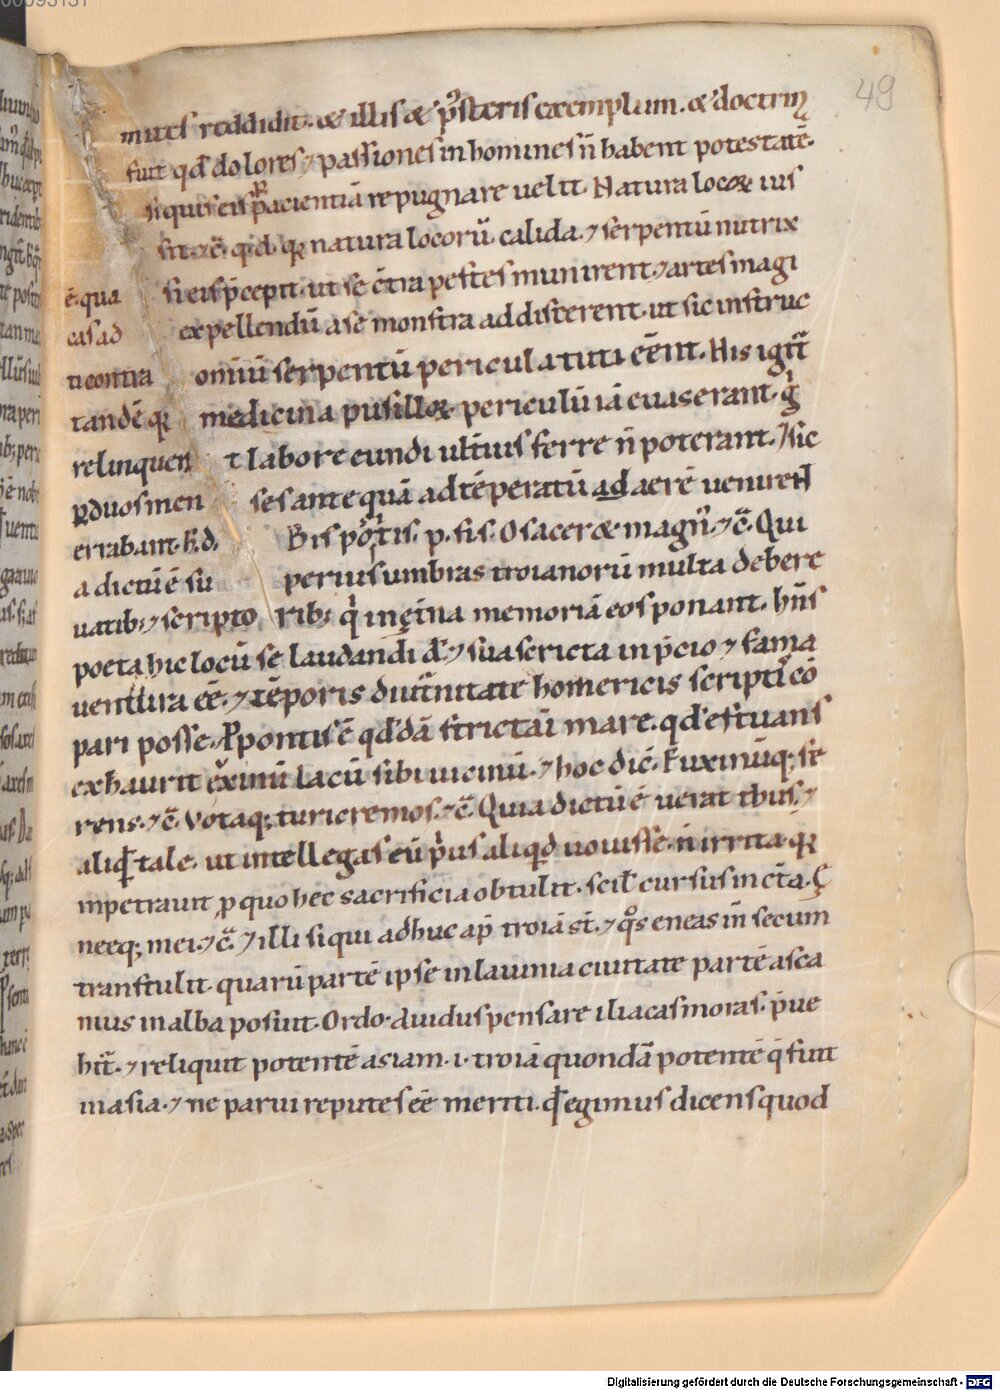 49
mites reddidit. & illis & pꝰsteris exemplum. & doctrin
fuit qđ dolores ⁊ passiones in homines n̄ habent potestatē.
si quis eis pacientiā repugnare uelit. Natura locoꝝ ius
sit. ⁊c̄. q.d. qꝛ natura locorū calida. ⁊ serpentū nutrix
ē. qua si eis p̄cepit. ut se c̄tra pestes munirent. ⁊ artes magi
cas ad expellendū a se monstra addiscerent. ut sic instruc
ti contra omniū serpentū pericula tuti eēnt. His igit̄
tandē qꝛ medicina pusilloꝝ periculū iā euaserant. g̊
relinquen t labore eundi ult̄ius ferre n̄ poterant. ⁊ sic
ꝑ duos men ses ante quā ad tēperatū ad aerē uenireN
errabant. h.d. Bis poͥtis. p. fis. O sacer & magn᷒. ⁊c̄. Qui
a dictū ē su perius umbras troianorū multa debere
uatib; ⁊ scripto rib; qͥ in ęt̄na memoriā eos ponant. hn̄s
poeta hic locū se laudandi d̄r ⁊ sua scricta in p̄cio ⁊ fama
uentura eē. ⁊ tēporis diut̄nitate homericis scriptͥ cō
pari posse. Ꝓpontis ē qđdā strictāi mare. qđ estuans
exhaurit exinū lacū sibi uicinū. ⁊ hoc dic̄. Euxinūq; fe
rens. ⁊c̄. Votaq; turicremos. ⁊c̄. Quia dictū ē uerat tbus. ⁊
aliqͥd tale. ut intellegas eū pͥus aliqͥd uouisse. n̄ irrita. qꝛ
inpetrauit ꝓ quo hec sacrificia obtulit. scil̄ cursus in cet̄a. Ç
neeq; mei. ⁊c̄. ⁊ illi si qui adhuc ap̄ troiā st̄. ⁊ qͦs eneas iñ secum
transtulit. quarū partē ipse in lauinia ciuitate partē asca
nius in alba posuit. Ordo. auidus pensare iliacas moras. p̄ue
hit̄. ⁊ reliquit potentē asiam. i. troiā quondā potentē q̄ fuit
in asia. ⁊ ne parui reputes eē meriti. q̄ egimus dicens quod
Digitalisierung gefördert durch die Deutsche Forschungsgemeinschaft - DFG